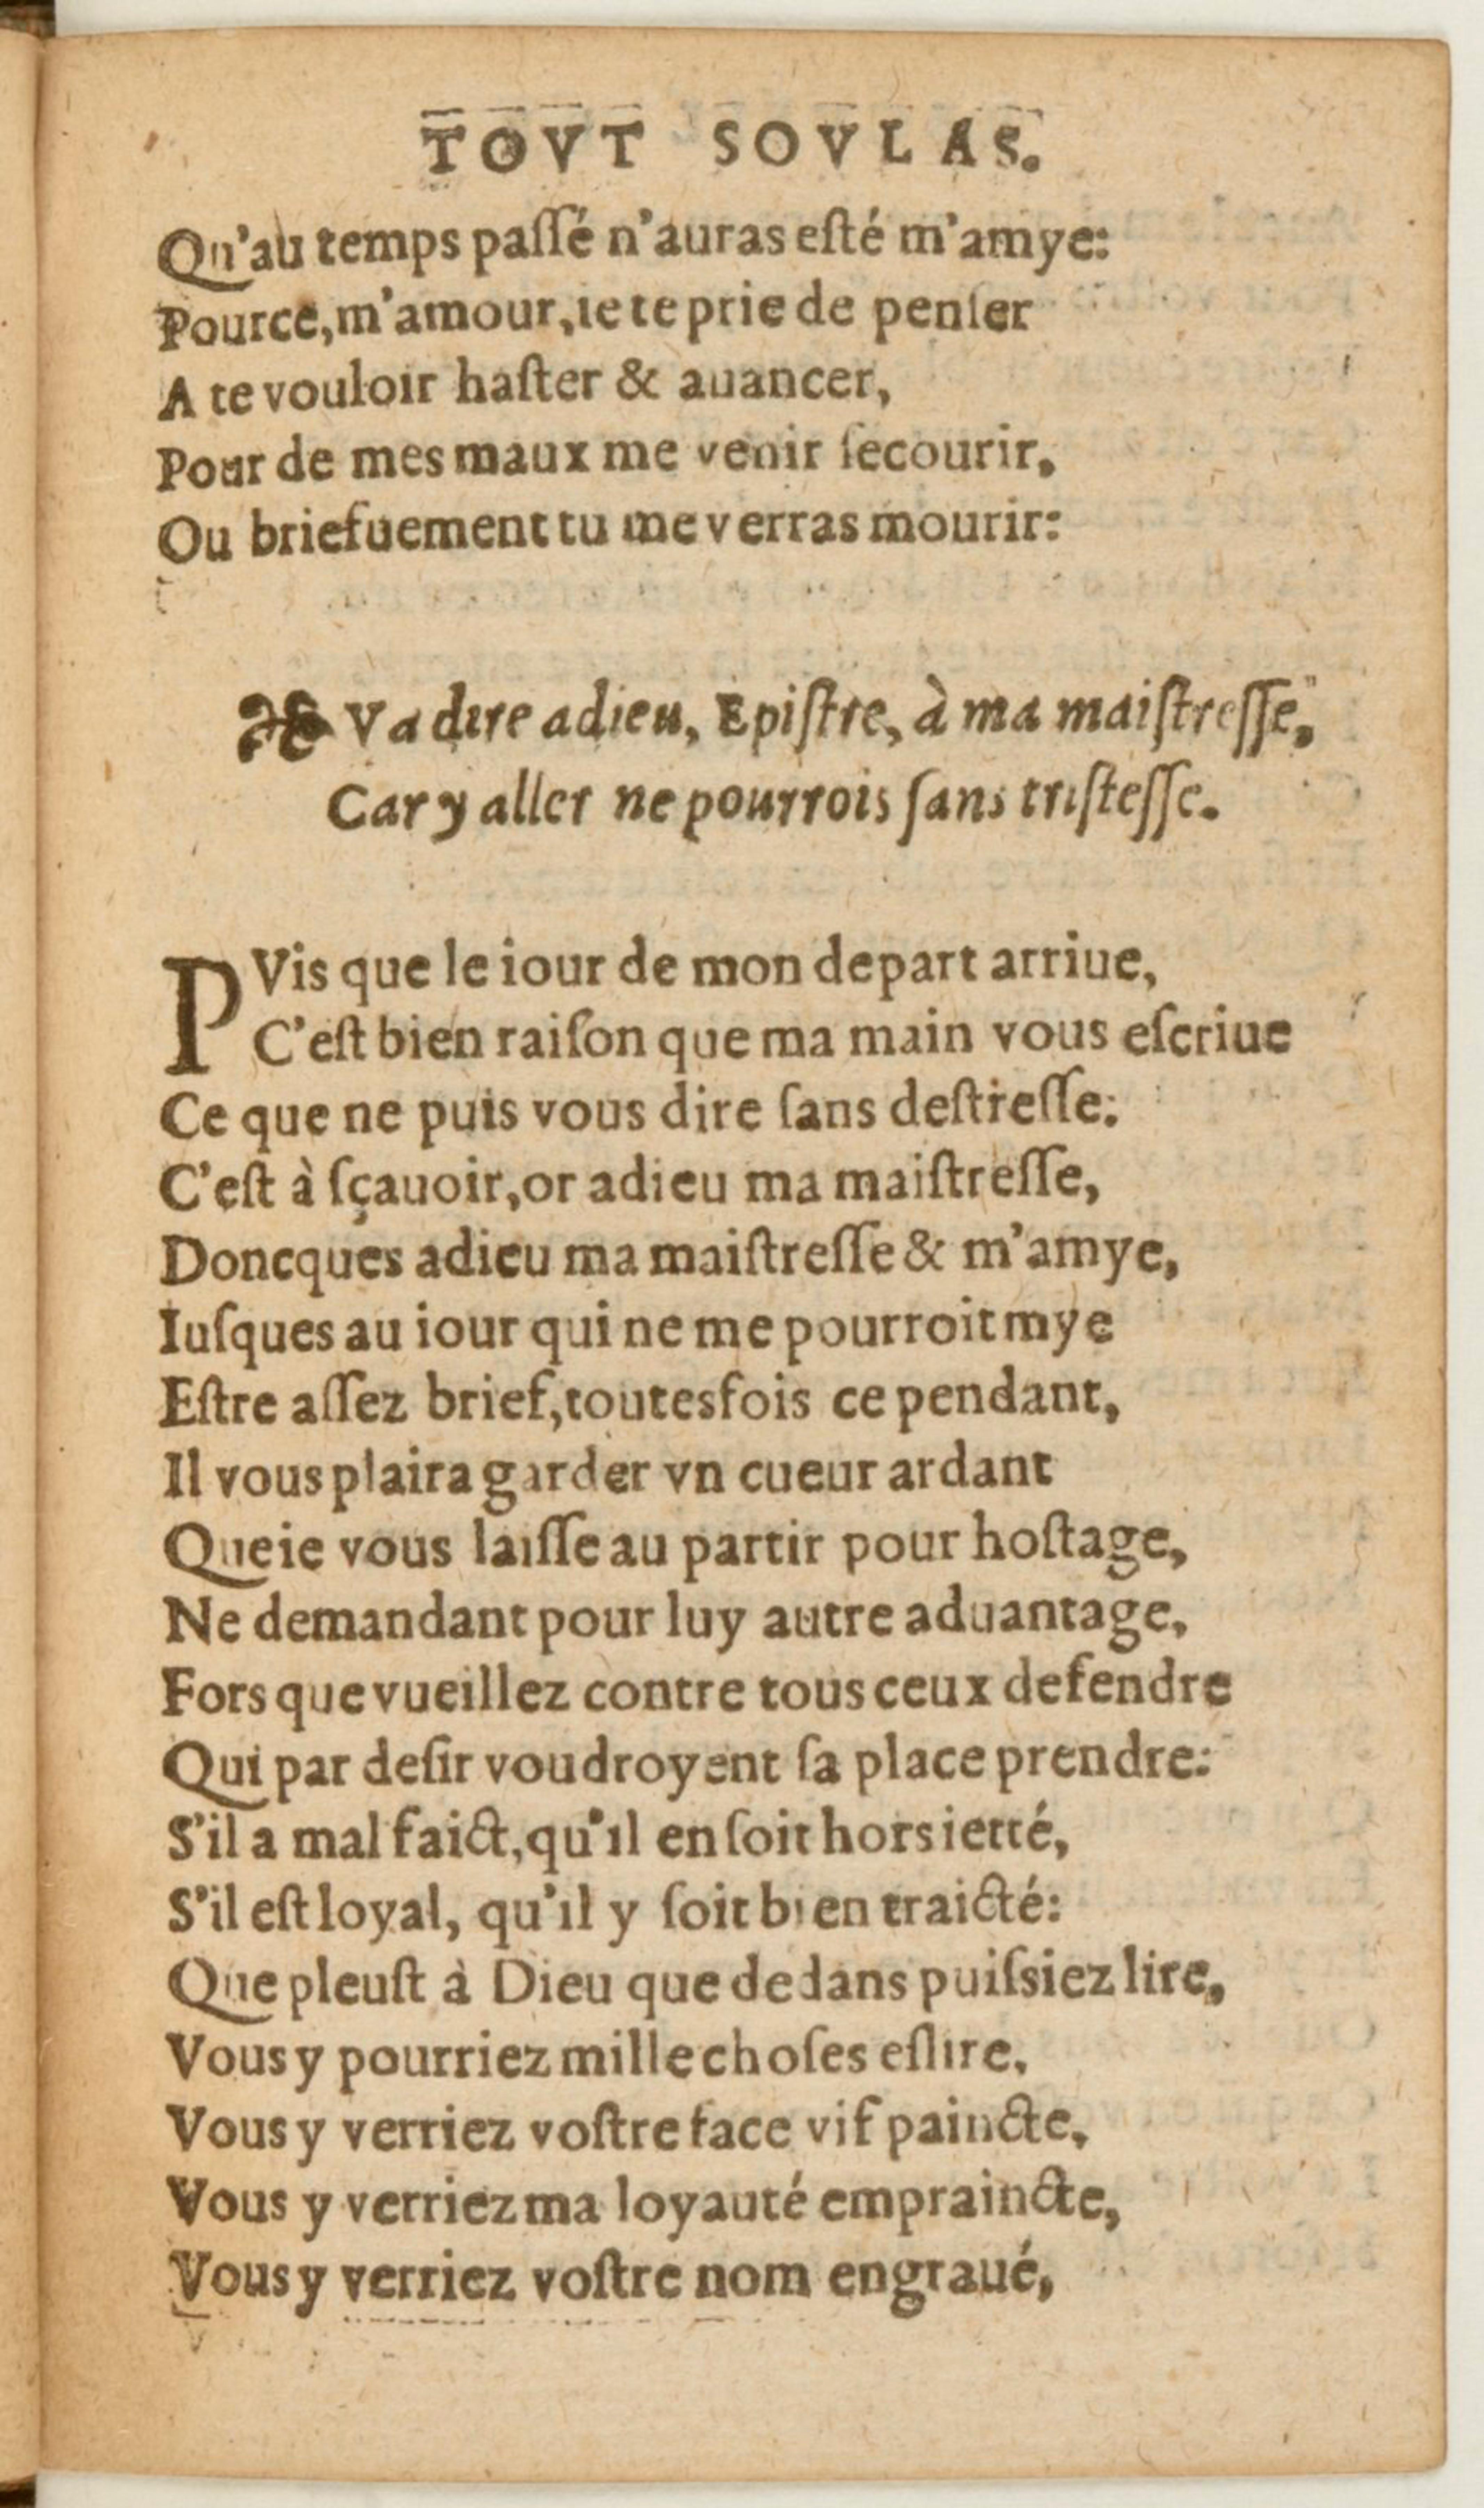 TOVT SOVLAS.
Qu'au temps paſſé n'auras eſté m'amye:
Pource, m'amour, ie te prie de penſer
A te vouloir haſter & auancer,
Pour de mes maux me venir ſecourir,
Ou briefuement tu me verras mourir:
❧ Va dire adieu, Epiſtre, à ma maiſtreſſe,
Car y aller ne pourrois ſans triſteſſe.
PVis que le iour de mon depart arriue,
C'eſt bien raiſon que ma main vous eſcriue
Ce que ne puis vous dire ſans deſtreſſe:
C'eſt à ſçauoir, or adieu ma maiſtreſſe,
Doncques adieu ma maiſtreſſe & m'amye,
Iuſques au iour qui ne me pourroit mye
Eſtre aſſez brief, toutesfois ce pendant,
Il vous plaira garder vn cueur ardant
Que ie vous laiſſe au partir pour hoſtage,
Ne demandant pour luy autre aduantage,
Fors que vueillez contre tous ceux defendre
Qui par deſir voudroyent ſa place prendre:
S'il a mal faict, qu'il en ſoit hors ietté,
S'il eſt loyal, qu'il y ſoit bien traicté:
Que pleuſt à Dieu que dedans puiſsiez lire,
Vous y pourriez mille choſes eſlire,
Vous y verriez voſtre face vif paincte,
Vous y verriez ma loyauté empraincte,
Vous y verriez voſtre nom engraué,